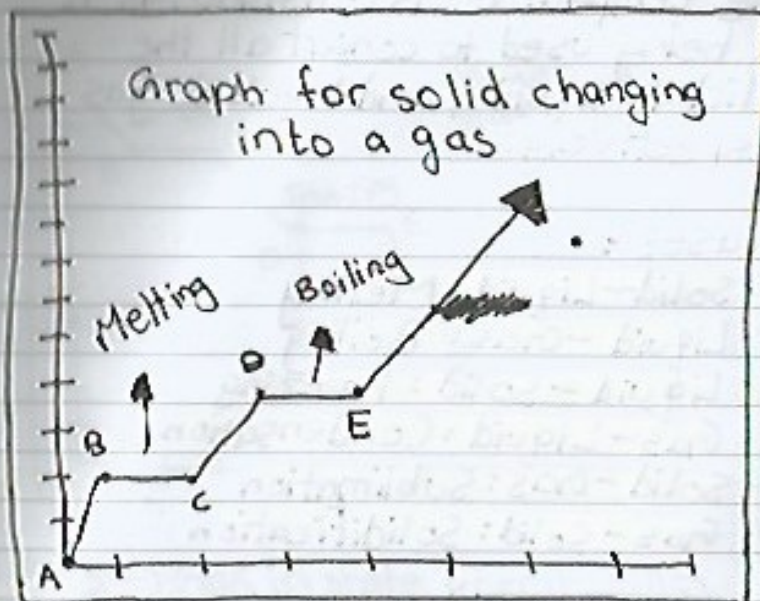 Graph for solid changing
into a gas
Melting
Boiling
B
C
D
E
A